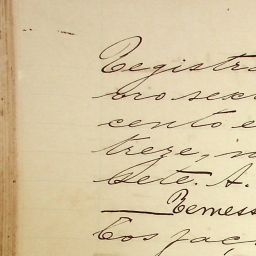 Registra
oro sex
cento e
treze, i
Sete. A.
Remess
Eos faç